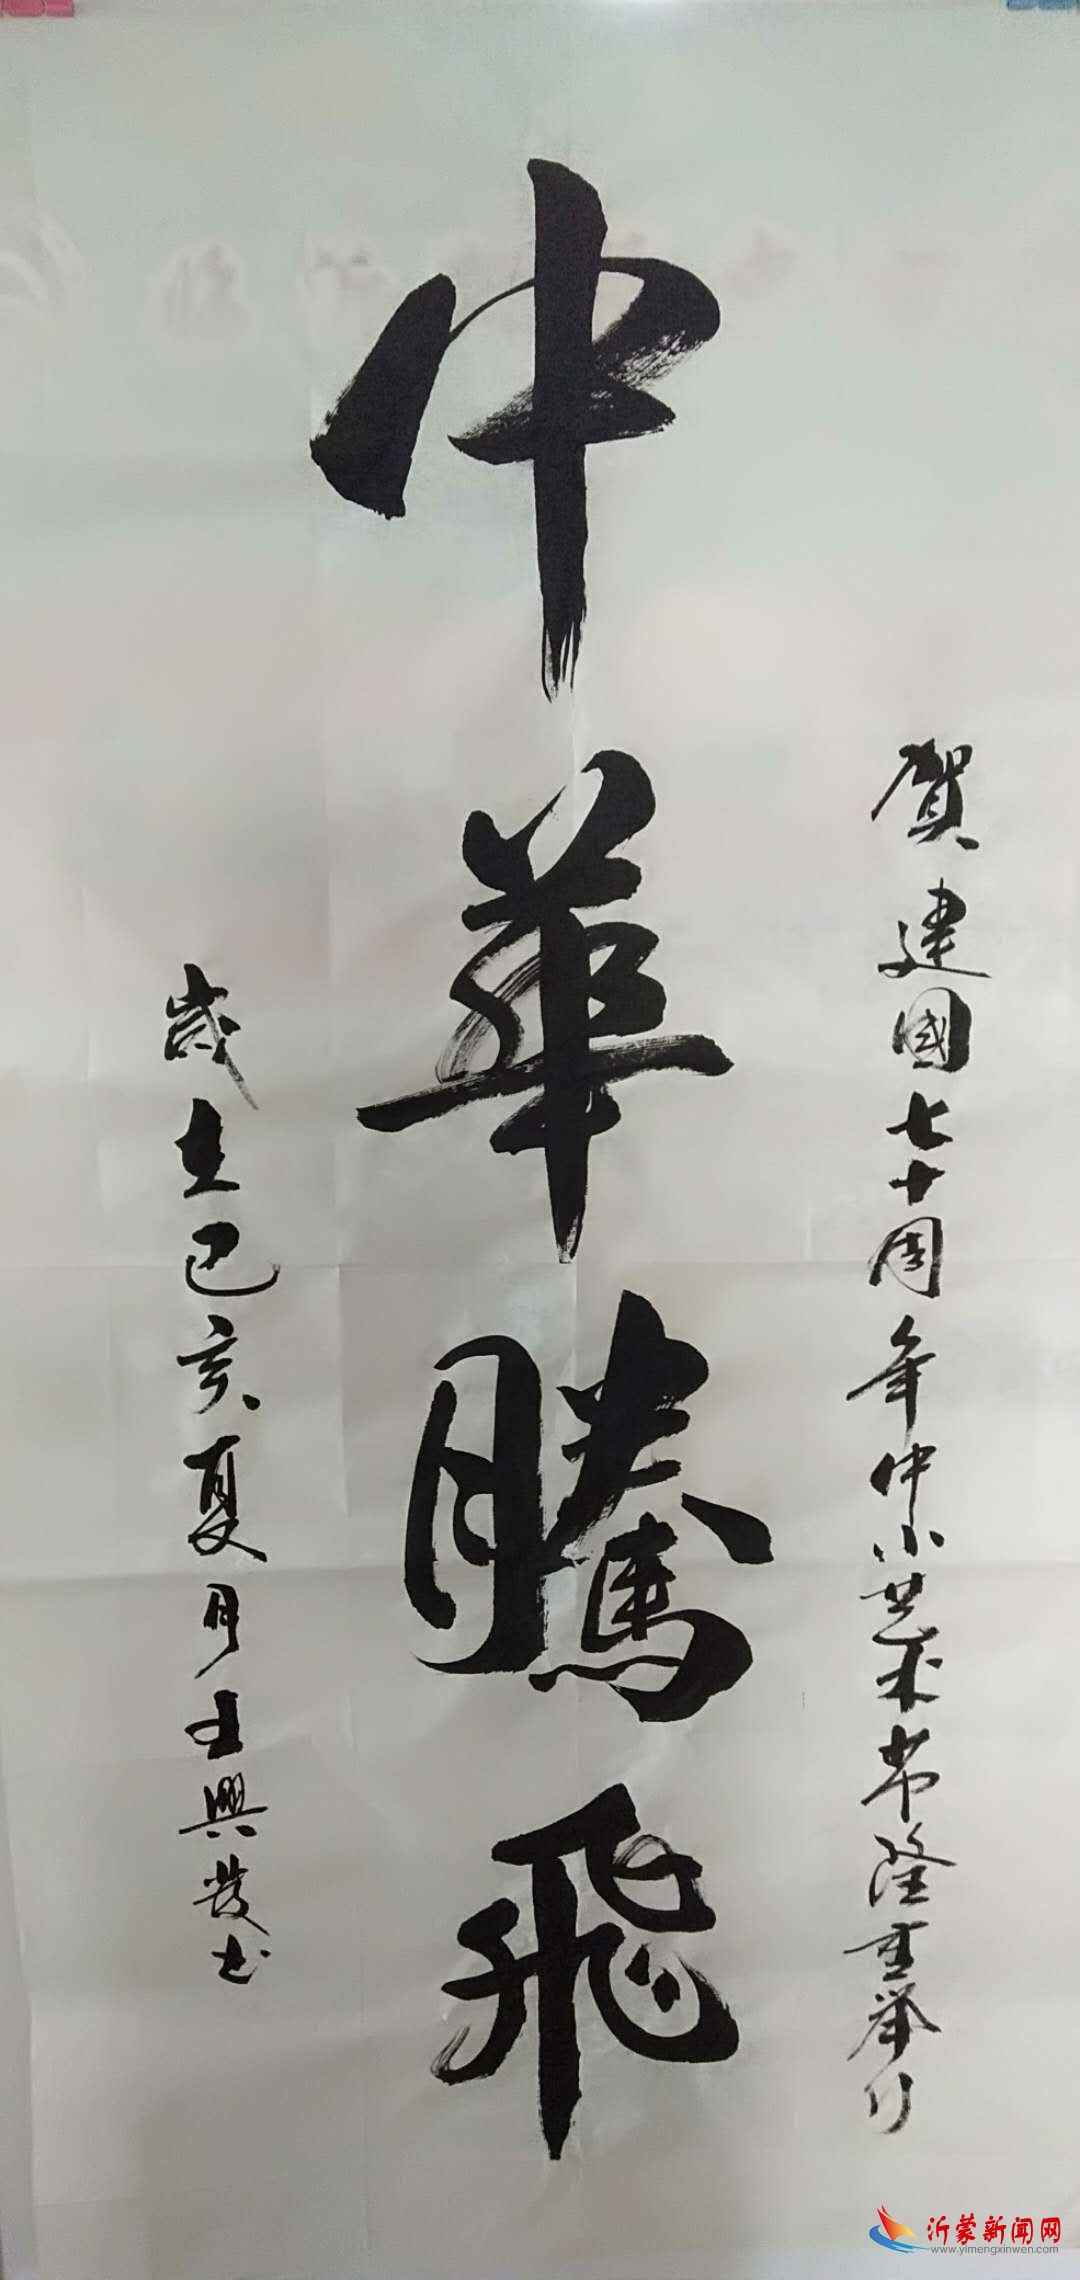 賀建國七十周年中小隆重举行
中華騰飛
歲在己亥夏月王興發书
沂蒙新闻网
www.yimengxinwen.com